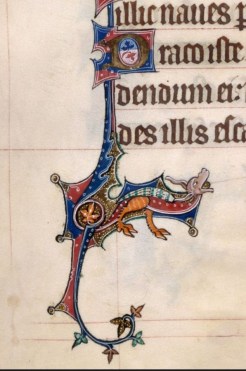 illic naues p
Draco iste
dendum ei:
des illis esca